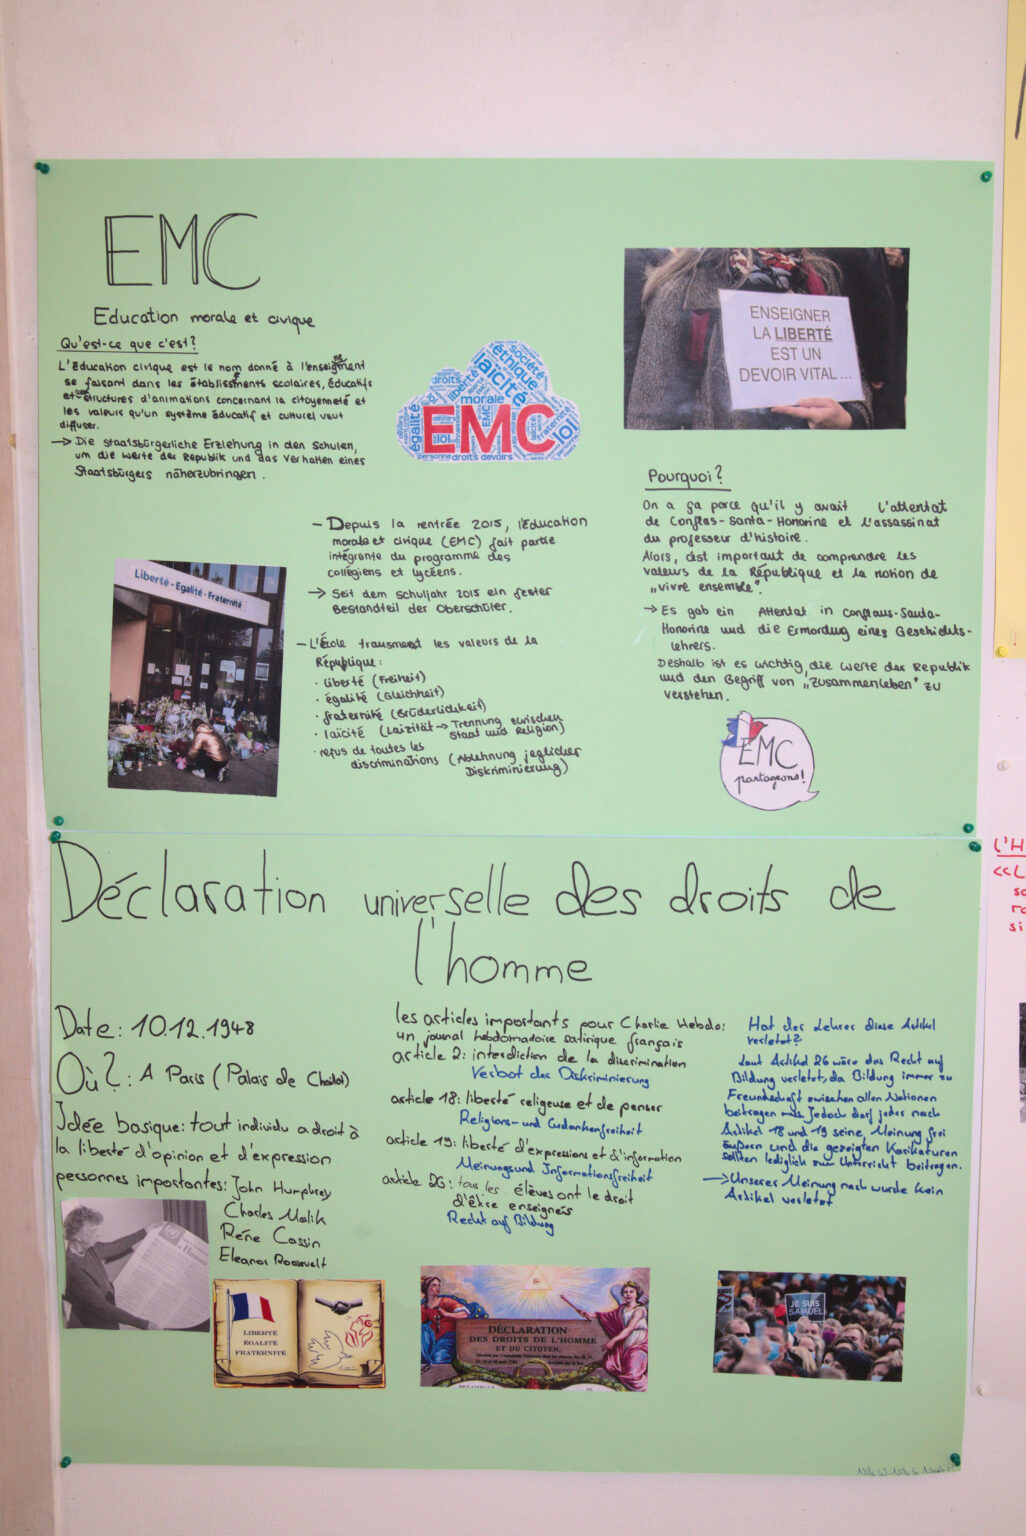 EMC
Education morale et civique
Qu'est-ce que c'est?
L'Éducation civique est le nom donné à l'enseignement
se faisant dans les établissments scolaires, éducatifs
et que structures d'animations concernant la citoyenneté et
les valeurs qu'un système éducatif et culturel veut
diffuser.
→ Die staatsbürgerliche Erziehung in den Schulen,
um die Werte der Republik und das Verhalten eines
Staatsbürgers näherzubringen.
société
éthique
laïcité
droits
liberté
morale
égalité
EMC
fraternité
loi
loi
personne droits devoirs
ENSEIGNER
LA LIBERTÉ
EST UN
DEVOIR VITAL ...
- Depuis la rentrée 2015, l'Education
morale et civique (EMC) fait partie
intégrante du programme des
collégiens et lycéens.
→ Seit dem Schuljahr 2015 ein fester
Bestandteil der Oberschüler.
- L'École transmet les valeurs de la
République:
· liberté (Freiheit)
· égalité (Gleichheit)
· fraternité (Brüderlichkeit)
· laïcité (Laizität → Trennung zwischen
Staat und Religion)
· refus de toutes les
discriminations (Ablehnung jeglicher
Diskriminierung)
Liberté - Egalité - Fraternité
Pourquoi?
On a ça parce qu'il y avait l'attentat
de Conflas-Santa-Honorine et l'assassinat
du professeur d'histoire.
Alors, c'est important de comprendre les
valeurs de la République et la notion de
„vivre ensemble".
→ Es gab ein Attentat in Conflans-Santa-
Honorine und die Ermordung eines Geschichts-
lehrers.
Deshalb ist es wichtig, die Werte der Republik
und den Begriff von „Zusammenleben" zu
verstehen.
EMC
partageons!
Déclaration universelle des droits de
l'homme
Date: 10.12.1948
Où?: A Paris (Palais de Chaillot)
Idée basique: tout individu a droit à
la liberté d'opinion et d'expression
personnes importantes: John Humphrey
Charles Malik
Réne Cassin
Eleanor Roosevelt
les articles importants pour Charlie Hebdo:
un journal hebdomadaire satirique français
article 2: interdiction de la discrimination
Verbot der Diskriminierung
article 18: liberté religeuse et de penser
Religions- und Gedankenfreiheit
article 19: liberté d'expressions et d'information
Meinungsund Informationsfreiheit
article 26: tous les élèves ont le droit
d'êkre enseignés
Recht auf Bildung
Hat der Lehrer diese Artikel
verletzt?
Laut Artikel 26 wäre das Recht auf
Bildung verletzt, da Bildung immer zu
Freundschaft zwischen allen Nationen
beitragen muss. Jedoch darf jeder nach
Artikel 18 und 19 seine Meinung frei
äußern und die gezeigten Karikaturen
sollten lediglich zum Unterricht beitragen.
→ Unserer Meinung nach wurde kein
Artikel verletzt
LIBERTÉ
ÉGALITÉ
FRATERNITÉ
DÉCLARATION
DES DROITS DE L'HOMME
ET DU CITOYEN,
JE SUIS
SAMUEL
L'H
<<L